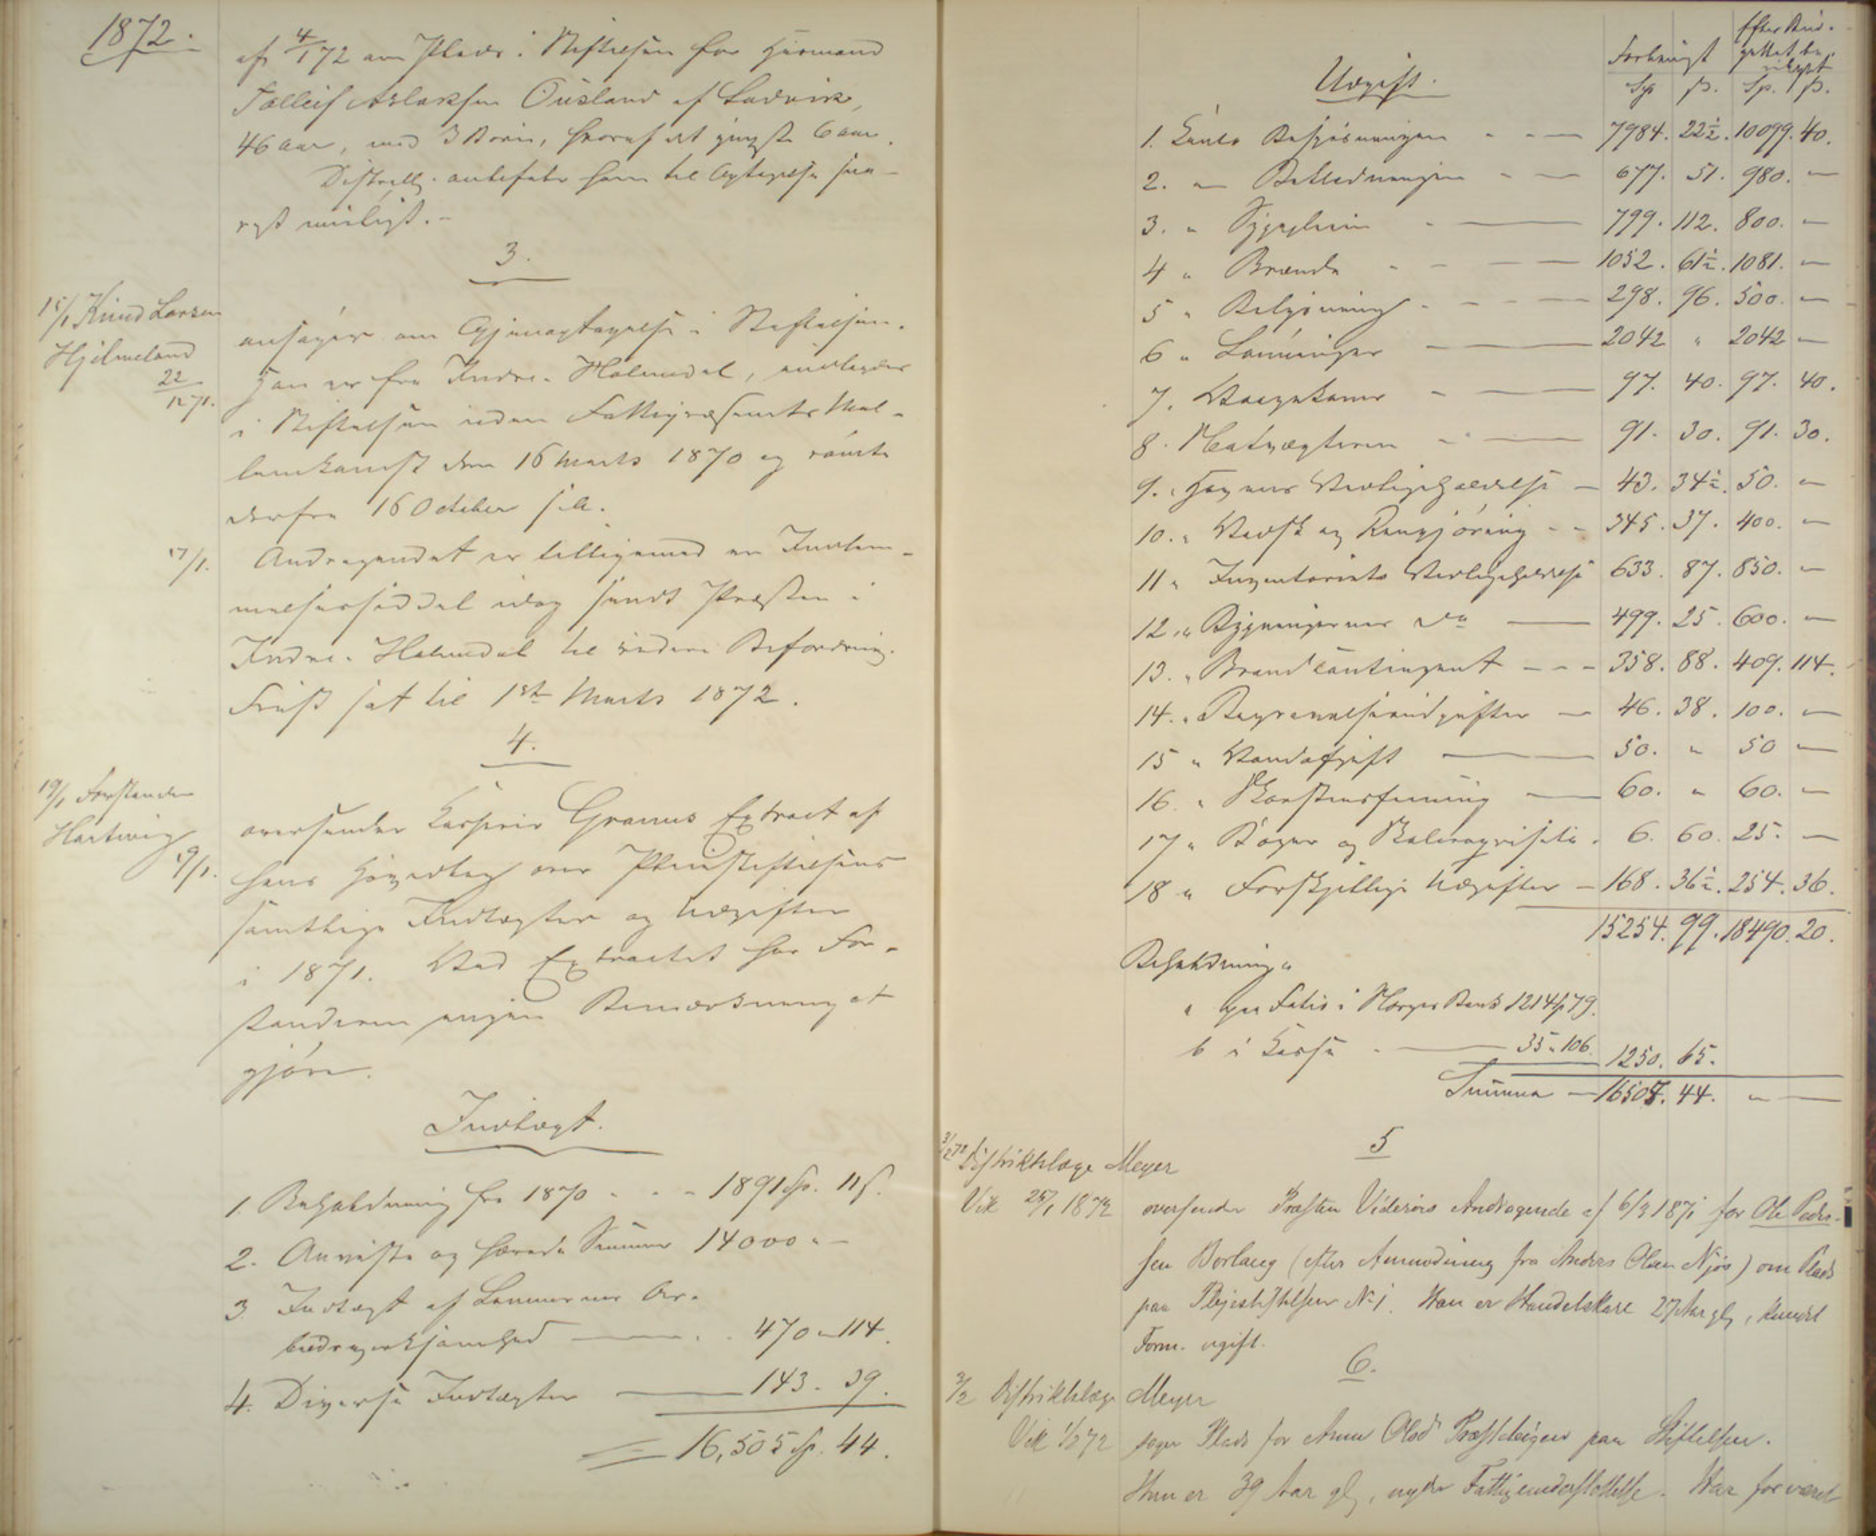 1872.
af 4/1 72 om Plads i Stiftelsen for Huusmand
Tælleif Aslaksen Ousland af Ladvik,
46 Aar, med 3 Børn, hvoraf det yngste 6 Aar.
Distrl. anbefaler ham til Optagelse sna-
rest muligt.-
3.
15/1 Knud Larsen
Hjelmeland
22/12 71.
ansøger om Gjenoptagelse i Stiftelsen.
Han er fra Indre-Holmedal, indlagdes
i Stiftelsen uden Fattigvæsenets Mel-
lemkomst den 16 Marts 1870 og rømte
derfra 16 October s.A.
17/1. Andragendet er tilligemed en Indlem-
melsesseddel idag sendt Præsten i
Indre-Holmedal til videre Befordring.
Frist sat til 1ste Marts 1872.
4.
19/1 Forstander
Hartwig
19/1.
oversender Kasserer Grams Extract af
hans Hovedbog over Pleiestiftelsens
samtlige Indtægter og Udgifter
i 1871. Ved Extractet har For-
standeren ingen Bemærkning at
gjøre.
Indtægt.
1. Beholdning fra 1870 - - - 1891 Sp. 11 ß.
2. Anviste og hævede Summer 14000 " -
3 Indtægt af Lemmernes Ar-
beidsvirksomhed — 470 " 114.
4. Diverse Indtægter — 143. 39.
= 16,505 Sp. 44.
Udgift.
Forbrugt
Efter Bud-
gettet be-
vilget
Sp ß. Sp. ß.
1. Conto Bespisningen - - — 7984. 22½. 10099. 40.
2. " Beklædningen - - — 677. 51. 980. "
3. " Sygepleien - — 799. 112. 800. "
4 " Brænde - - — 1052. 61½. 1081. "
5 " Belysning - - — 298. 96. 500. "
6 " Lønninger — 2042 " 2042 "
7. Vaagekoner - — 97. 40. 97. 40.
8. Natvægteren - — 91. 30. 91. 30.
9. " Havens Vedligeholdelse — 43. 34½. 50. "
10. " Vadsk og Rengjøring - - 345. 37. 400. "
11 " Inventariets Vedligeholdelse 633. 87. 850. "
12. " Bygningernes do — 499. 25. 600. "
13. " Brandcontingent - - - 358. 88. 409. 114.
14. " Begravelsesudgifter — 46. 38. 100. "
15 " Vandafgift — 50. " 50 "
16. " Skorstensfeining — 60. " 60. "
17 " Bøger og Skriverequisita. 6. 60. 25. —
18 " Forskjellige Udgifter — 168. 36½. 254. 36.
15254. 99. 18490. 20.
Beholdning "
a paa Folio i Norges Bank 1214 " 79.
b i Kassa - — 35 " 106. 1250. 65.
Summa — 16505. 44. "
5
3/2 72 Distriktslæge Meyer
Vik 25/1 1872 oversender Præsten Viderøes Andragende af 6/2 1871 for Ole Peder-
sen Borlaug (efter Anmodning fra Anders Olsen Njøs) om Plads
paa Plejestiftelsen No 1. Han er Handelskarl 27 Aar gl,
Form. ugift.
6.
3/2 Distriktslæge Meyer
Vik 1/2 72 søger Plads for Anna Olsdr Præsteeigen paa Stiftelsen.
Hun er 39 Aar gl, nyder Fattigunderstøttelse. Har før været